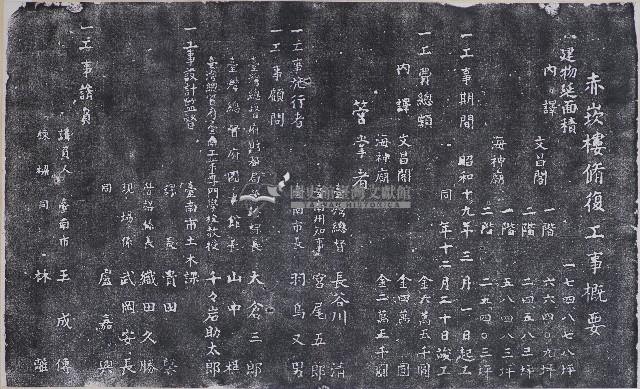 赤崁樓修復工事概要
一建物延面積 一七四八七八坪
內譯
文昌閣 一階 六六四〇九坪
二階 二四五八三坪
海神廟 一階 五八四八三坪
二階 二五四〇三坪
一工事期間 昭和十九年三月一日起工
同 年十二月二十日竣工
一工費總額 金六萬五千圓
內譯 文昌閣 金四萬圓
海神廟 金二萬五千圓
管掌者
臺灣總督 長谷川 清
臺南州知事 宮尾五郎
臺南市長 羽鳥又男
一工事施行者
一工事顧問
臺灣總督府財務局營繕課長 大倉三郎
臺灣總督府 山中樵
臺灣總督府臺南工業專門學校教授 千々岩助太郎
一工事設計監督
臺南市土木課
課長 貴田
營繕係長 織田久勝
現場係 武岡安長
同 盧嘉興
一工事請負
請負人 臺南市 王成傳
棟樑 同 林離